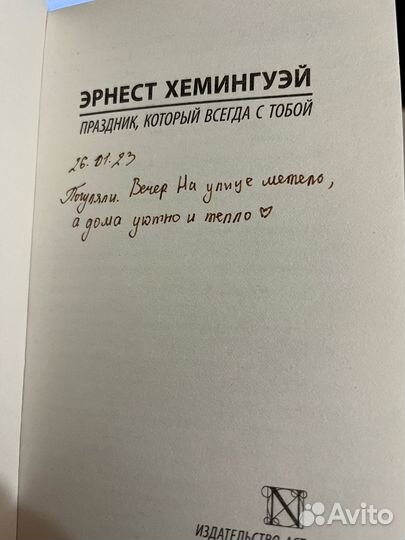 ЭРНЕСТ ХЕМИНГУЭЙ
ПРАЗДНИК, КОТОРЫЙ ВСЕГДА С ТОБОЙ
26.01.23
Погуляли. Вечер На улице метель,
а дома уютно и тепло ♡
N
ИЗДАТЕЛЬСТВО АСТ
Avito